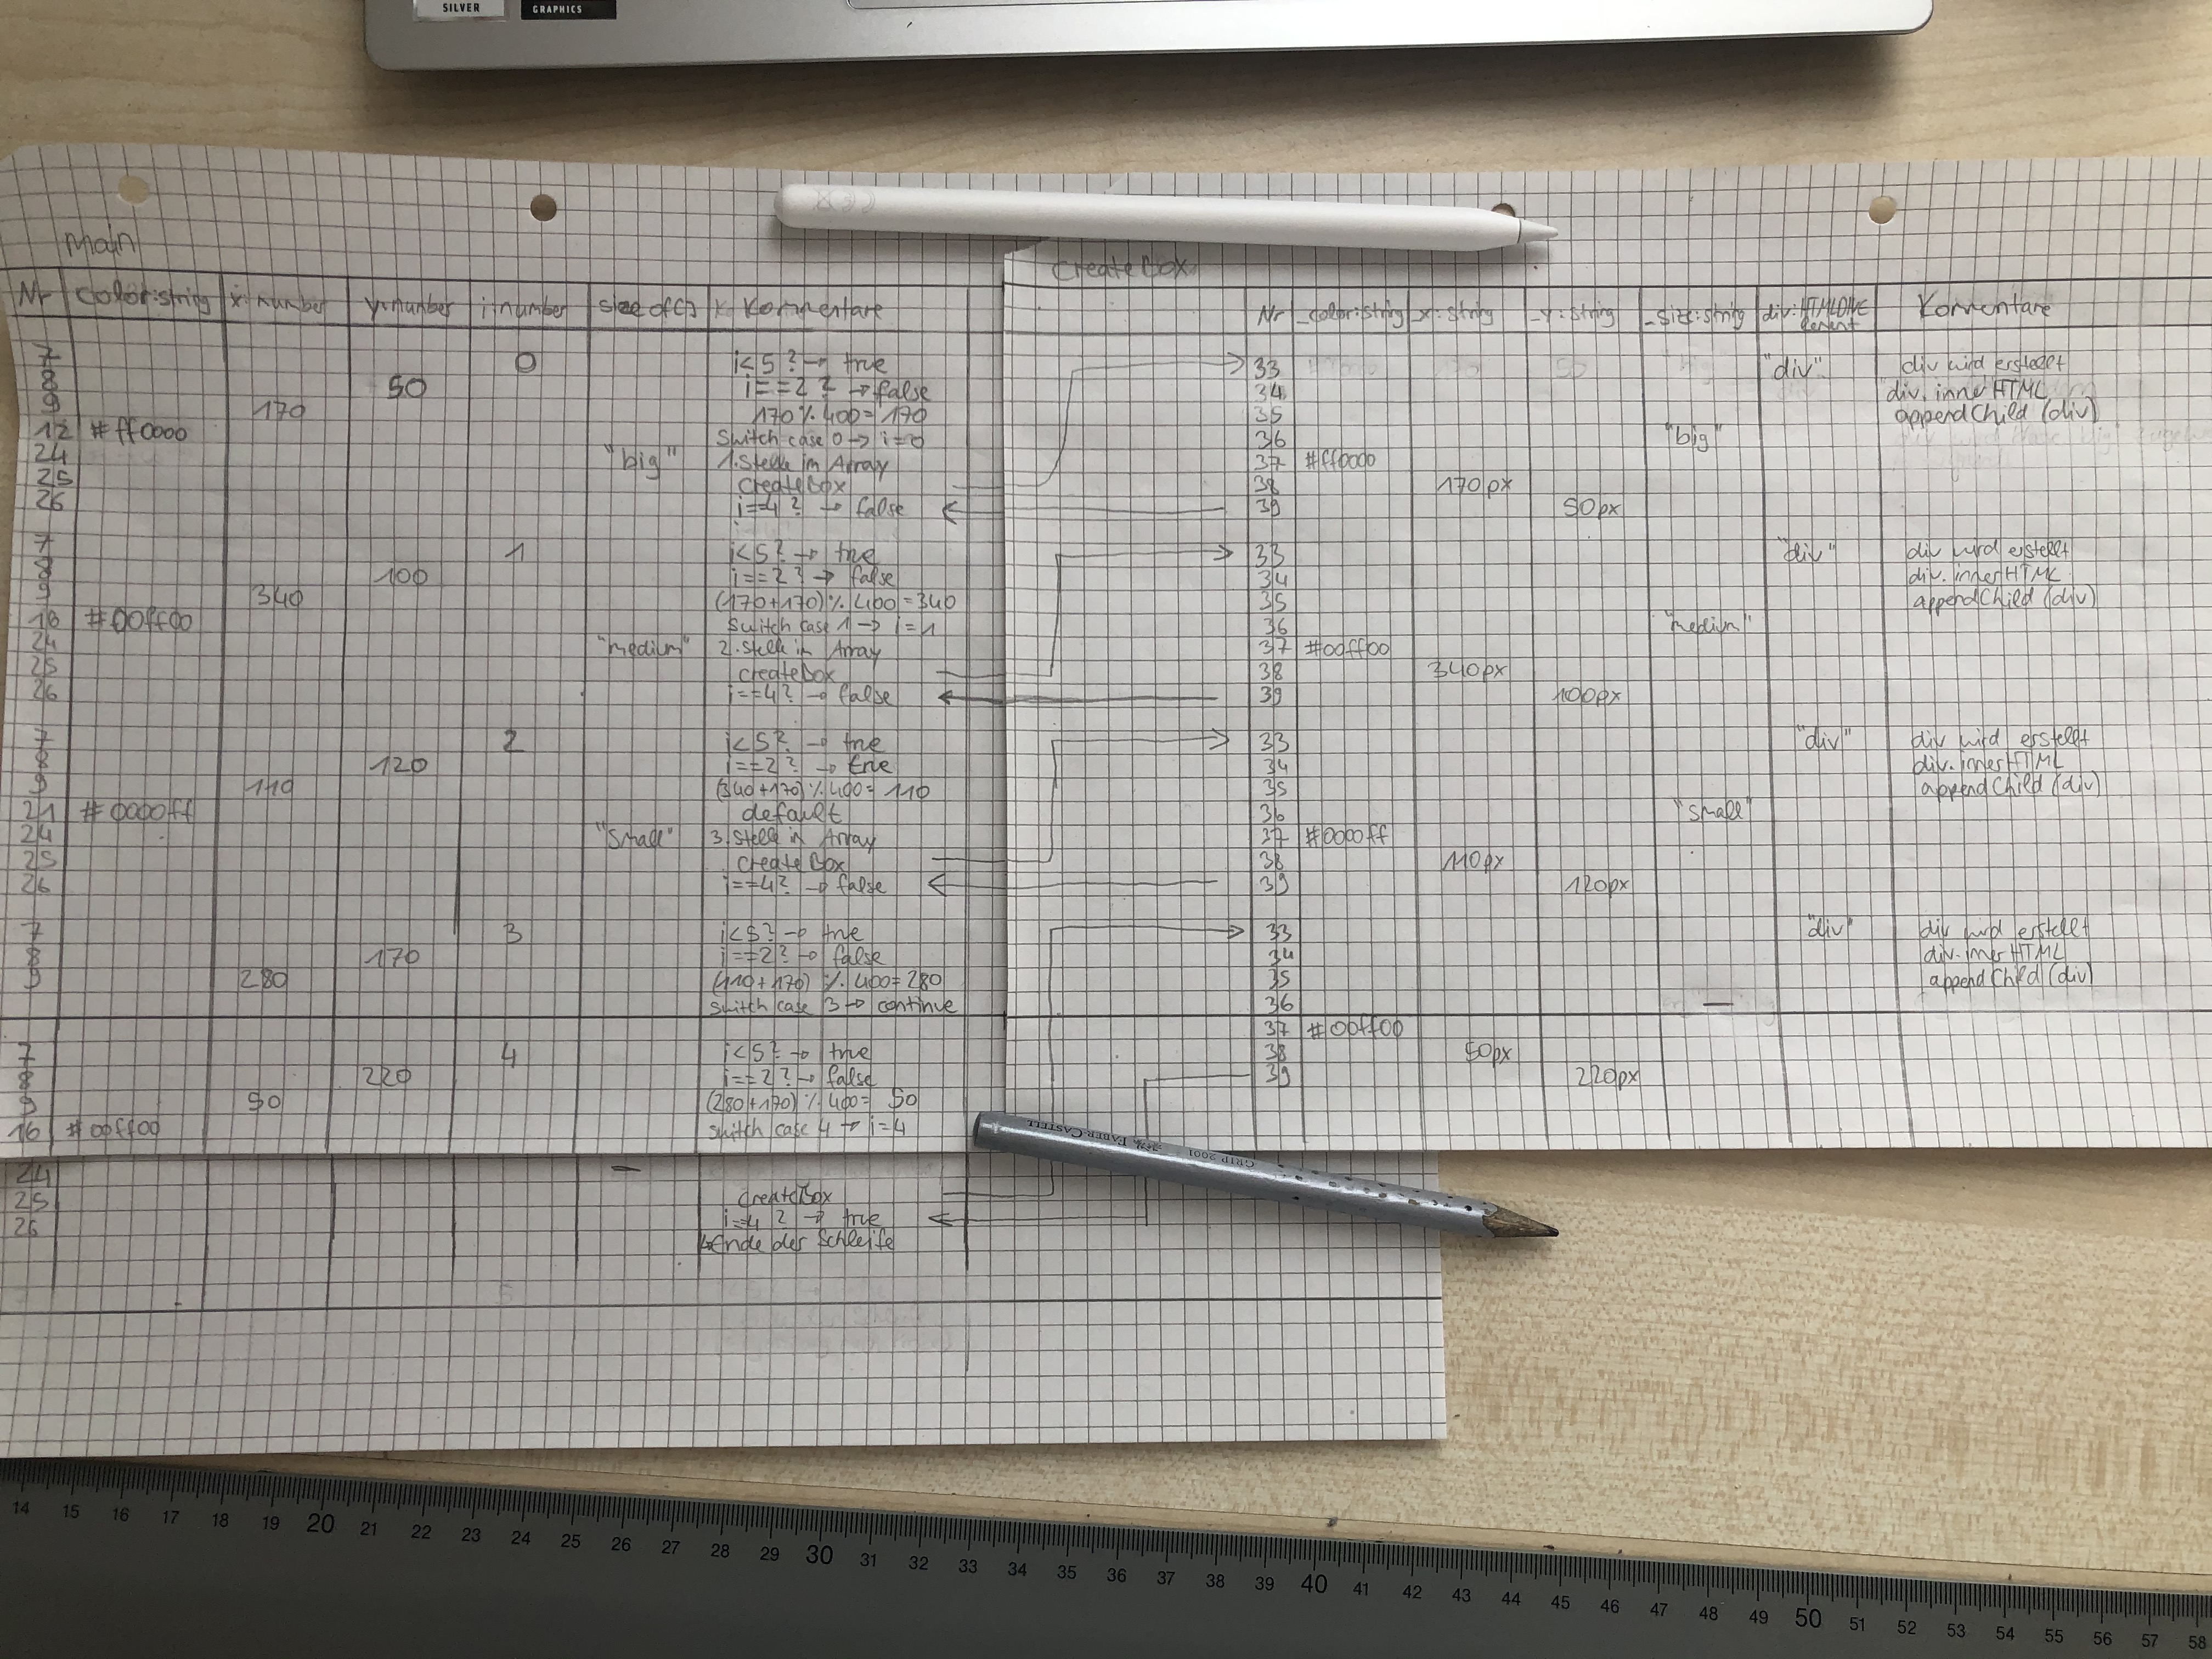 SILVER
GRAPHICS
Main
Nr color:string x:number y:number i:number size of[] Kommentare
7 0 i<5? → true
8 50 i==2? → false
9 170 170%400=170
12 #ff0000 Switch case 0 → i=0
24 "big" 1.Stelle im Array
25 createBox
26 i==4? → false
7 1 i<5? → true
8 100 i==2? → false
9 340 (170+170)%400=340
16 #00ff00 Switch case 1 → i=1
24 "medium" 2.Stelle in Array
25 createBox
26 i==4? → false
7 2 i<5? → true
8 120 i==2? → true
9 110 (340+170)%400=110
21 #0000ff default
24 "small" 3.Stelle in Array
25 createBox
26 i==4? → false
7 3 i<5? → true
8 170 i==2? → false
9 280 (110+170)%400=280
switch case 3 → continue
7 4 i<5? → true
8 220 i==2? → false
9 50 (280+170)%400= 50
16 #00ff00 switch case 4 → i=4
24 –
25 createBox
26 i==4? → true
Ende der Schleife
createBox
Nr _color:string _x:string _y:string _size:string div:HTMLDIVElement Kommentare
33 "div" div wird erstellt
34 div.innerHTML
35 appendChild (div)
36 "big"
37 #ff0000
38 170px
39 50px
33 "div" div wird erstellt
34 div.innerHTML
35 appendChild (div)
36 "medium"
37 #00ff00
38 340px
39 100px
33 "div" div wird erstellt
34 div.innerHTML
35 appendChild (div)
36 "small"
37 #0000ff
38 110px
39 120px
33 "div" div wird erstellt
34 div.innerHTML
35 appendChild (div)
36 –
37 #00ff00
38 50px
39 220px
FABER-CASTELL
GRIP 2001
14 15 16 17 18 19 20 21 22 23 24 25 26 27 28 29 30 31 32 33 34 35 36 37 38 39 40 41 42 43 44 45 46 47 48 49 50 51 52 53 54 55 56 57 58